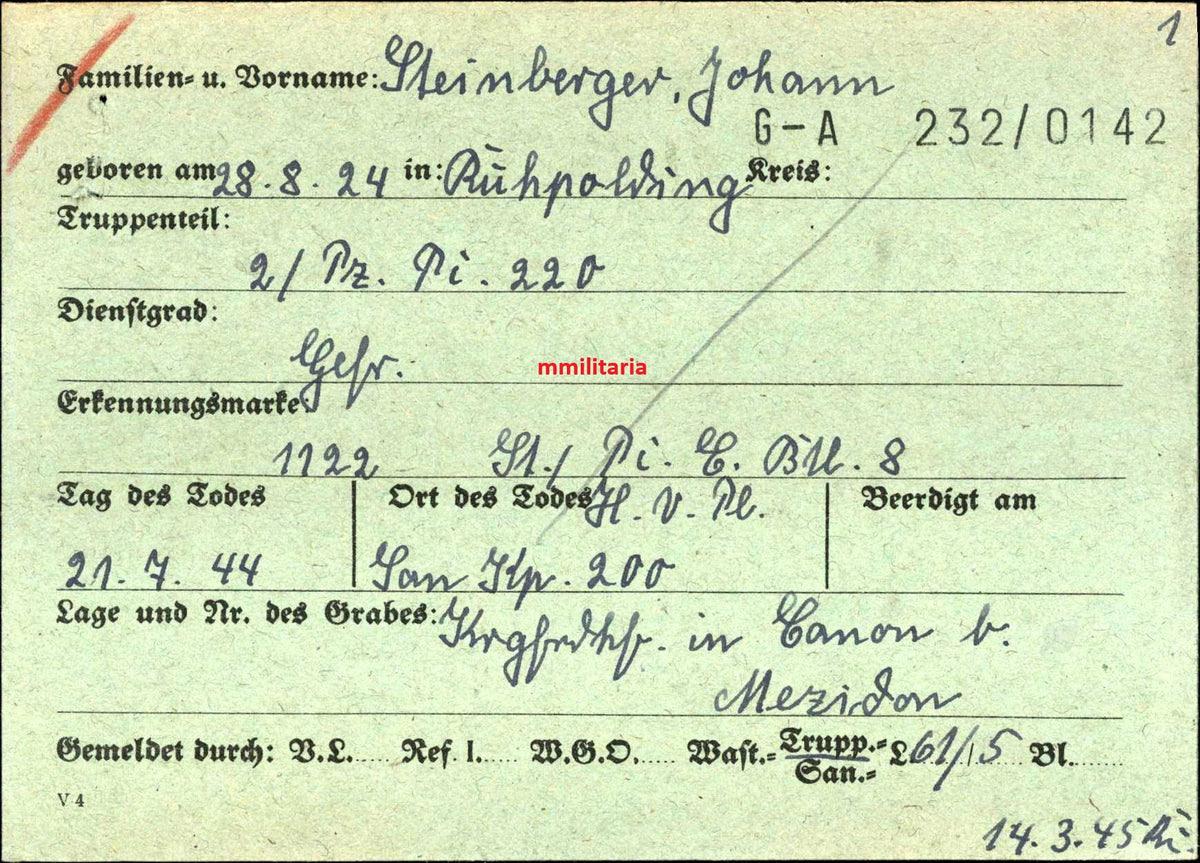 1
Familien= u. Vorname: Steinberger, Johann
G-A 232/0142
geboren am 28.8.24 in: Ruhpolding Kreis:
Truppenteil:
2/ Pz. Pi. 220
Dienstgrad:
Gefr.
mmilitaria
Erkennungsmarke:
1122 St./ Pi. E. Btl. 8
Tag des Todes Ort des Todes H. V. Pl. Beerdigt am
21. 7. 44 San Kp. 200
Lage und Nr. des Grabes: Krgfrdhf. in Canon b.
Mezidon
Gemeldet durch: V.L. Ref. I. W.G.O. Wast.= Trupp.= San.= L 61/5 Bl.
V 4
14.3.45